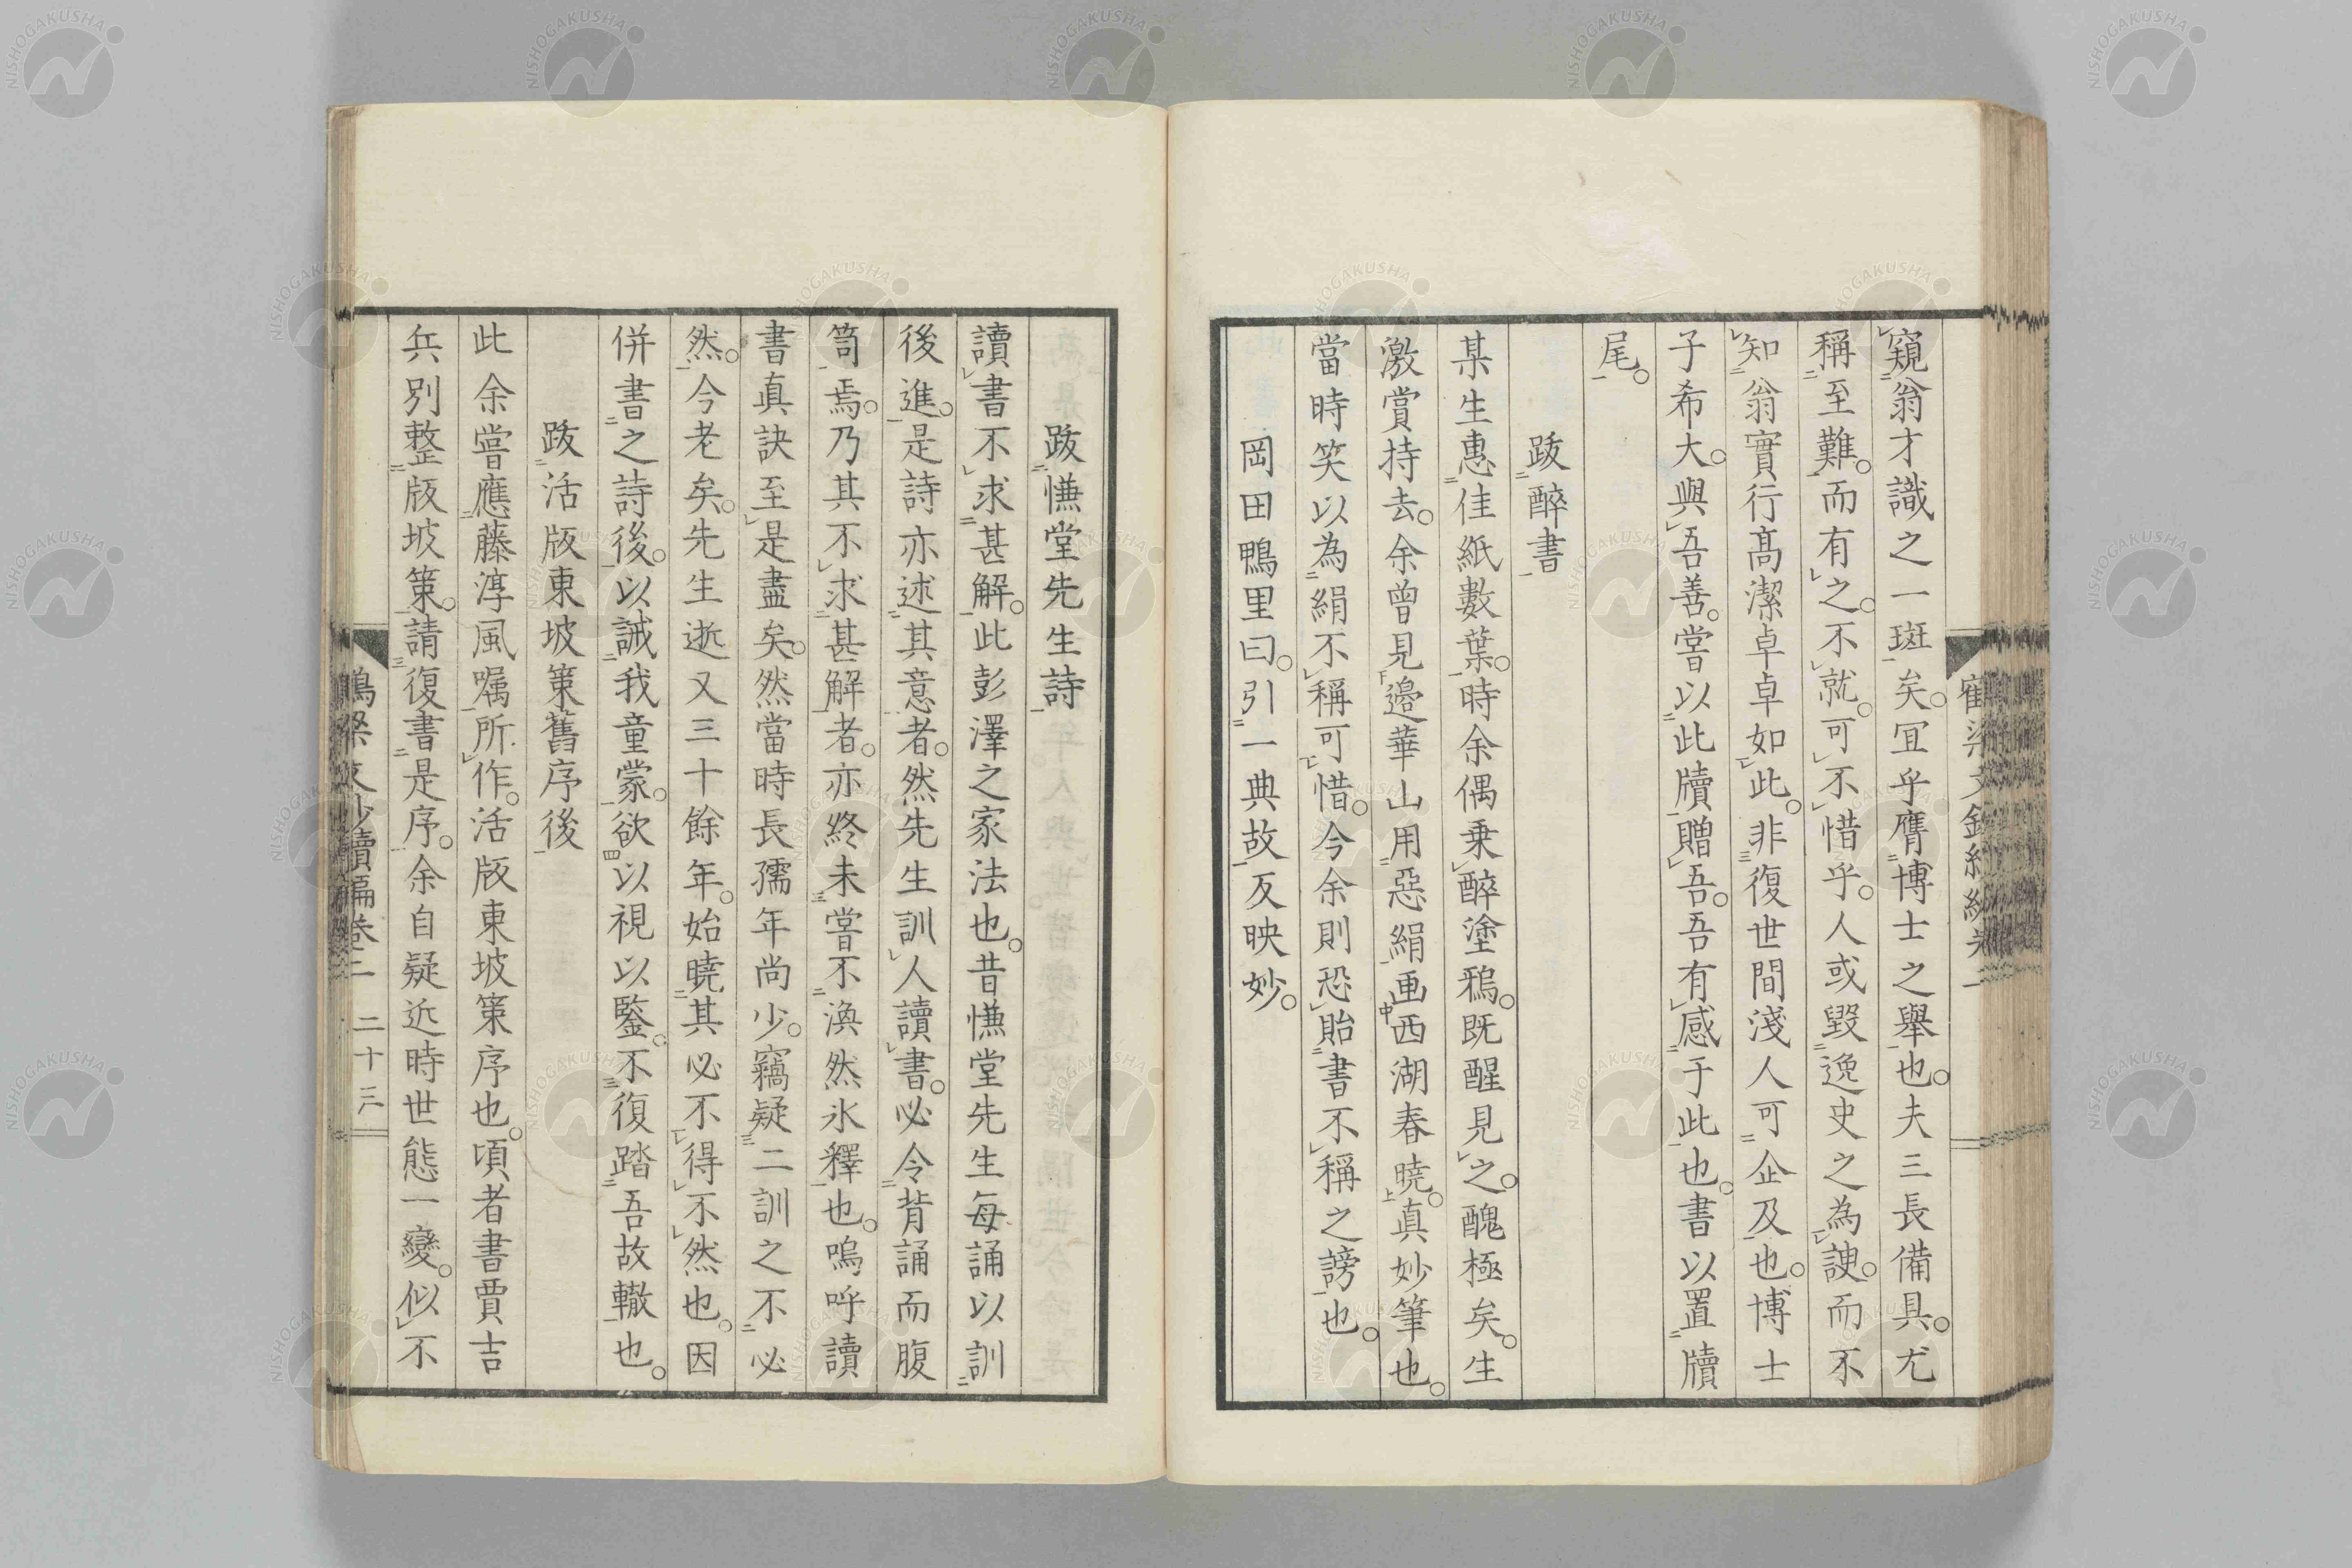 窺翁才識之一斑矣。冝乎膺博士之舉也。夫三長備具。尤
稱至難。而有之。不就。可不惜乎。人或毀逸史之為諛。而不
知翁實行髙潔卓卓如此。非復世間淺人可企及也。博士
子希大。與吾善。嘗以此牘贈吾。吾有感于此也。書以置牘
尾。
跋醉書
某生惠佳紙數葉。時余偶乗醉塗鴉。既醒見之。醜極矣。生
激賞持去。余曾見邉華山用惡絹画西湖春曉。真妙筆也。
當時笑以為絹不稱可惜。今余則恐貽書不稱之謗也。
岡田鴨里曰。引一典故。反映妙。
跋慊堂先生詩
讀書不求甚解。此彭澤之家法也。昔慊堂先生每誦以訓
後進。是詩亦述其意者。然先生訓人讀書。必令背誦而腹
笥焉。乃其不求甚解者。亦終未嘗不渙然氷釋也。嗚呼讀
書真訣至是盡矣。然當時長孺年尚少。竊疑二訓之不必
然。今老矣。先生逝又三十餘年。始曉其必不得不然也。因
併書之詩後。以誡我童蒙。欲以視以鑒。不復踏吾故轍也。
跋活版東坡策舊序後
此余嘗應藤淳風嘱所作。活版東坡策序也。頃者書賈吉
兵別整版坡策。請復書是序。余自疑近時世態一變。似不
二十三
NISHOGAKUSHA